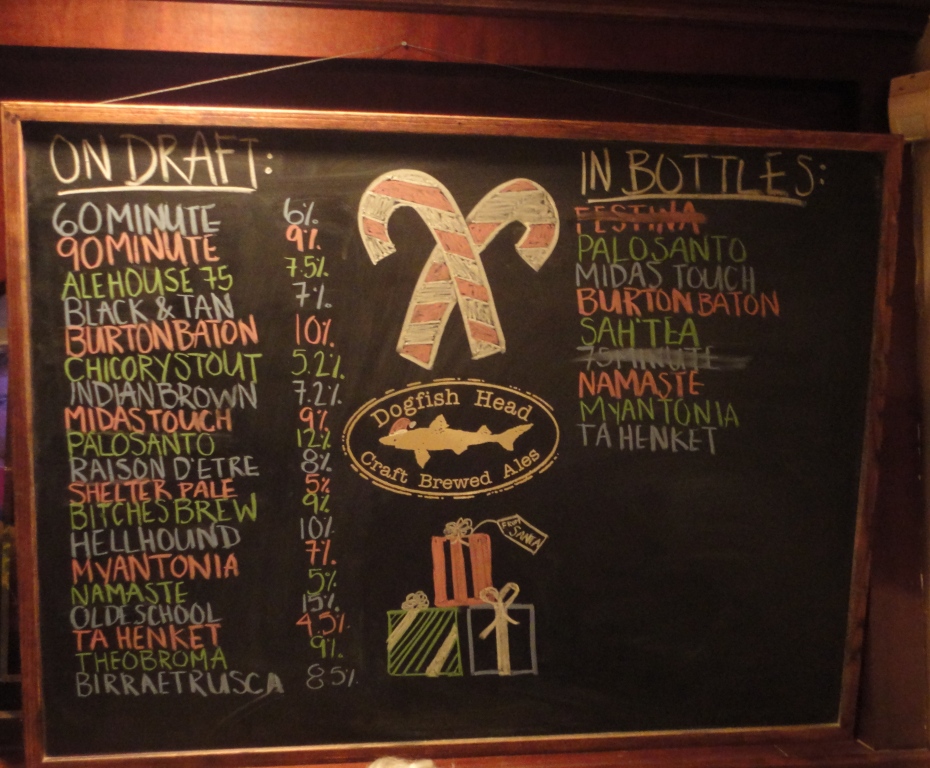 ON DRAFT:
60 MINUTE 6%
90 MINUTE 9%
ALEHOUSE 75 7.5%
BLACK & TAN 7%
BURTON BATON 10%
CHICORY STOUT 5.2%
INDIAN BROWN 7.2%
MIDAS TOUCH 9%
PALO SANTO 12%
RAISON D'ETRE 8%
SHELTER PALE 5%
BITCHES BREW 9%
HELLHOUND 10%
MY ANTONIA 7%
NAMASTE 5%
OLDE SCHOOL 15%
TA HENKET 4.5%
THEOBROMA 9%
BIRRA ETRUSCA 8.5%
Dogfish Head
Craft Brewed Ales
FROM
SANTA
IN BOTTLES:
FESTINA
PALO SANTO
MIDAS TOUCH
BURTON BATON
SAH'TEA
75 MINUTE
NAMASTE
MY ANTONIA
TA HENKET